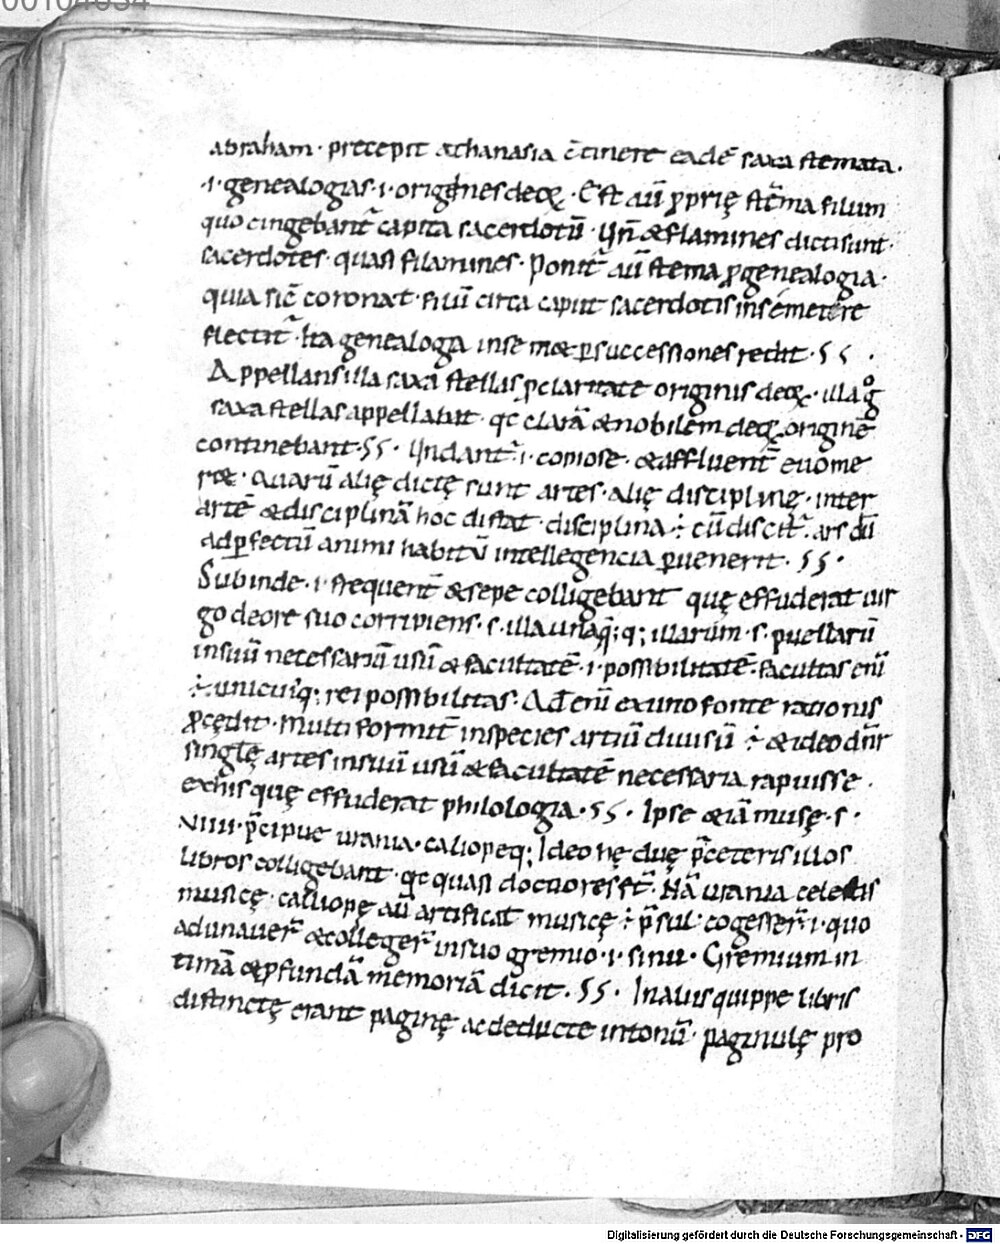 00104034
abraham · precepit athanasia c̄tinere eadē saxa stemata ·
·i· genealogias ·i· origines deoꝝ · Est aū ꝓprię stēma filum
quo cingebant᷑ capita sacerdotū · Un̄ & flamines dicti sunt ·
sacerdotes · quasi filamines · Ponit᷑ aū stema ꝓ genealogia ·
quia sic̄ coronat · filū circa caput sacerdotis in semet re
flectit᷑ · Ita genealoga in se met ꝑ successiones redit · §§ ·
Appellans illa saxa stellas p̄claritate originis deoꝝ · illa g̊
saxa stellas appellabat · qc clarā & nobilem deoꝝ originē
continebant · §§ · Undant᷑ ·i· copiose · & affluent̄ euome
ret · Quarū alię dictę sunt artes · alię disciplinę · inter
artē & disciplinā hoc distat · disciplina ÷ cū discit᷑ · ars dū
ad ꝑfectū animi habitū intellegencia ꝑuenerit · §§ ·
Subinde ·i· frequent̄ & sepe colligebant quę effuderat uir
go de ore suo corripiens · s · illa unaq;q; illarum · s · puellarū
in suū necessariū usū & facultatē ·i· possibilitatē · facultas enī
÷ unicuiq; rei possibilitas · Ad enī ex uno fonte rationis
ꝓcedit · multiformit̄ in species artiū diuisū ÷ & ideo dn̄r
singlę artes in suū usū & facultatē necessaria rapuisse ·
ex his quę effuderat philologia · §§ · Ipse & iā musę · s ·
VIIII · p̄cipue urania · caliopeq; Ideo hę duę p̄ ceteris illos
libros colligebant · qc quasi doctiores st̄ · Nā urania celestis
musicę · calliopę aū artificat musicę ÷ p̄sul · cogesser᷑ ·i· quo
adunauer᷑ & colleger᷑ in suo gremio ·i· sinu · Gremium in
timā & ꝓfundā memoriā dicit · §§ · In aliis quippe libris
distinctę erant paginę ac deducte in tonū · paginulę pro
Digitalisierung gefördert durch die Deutsche Forschungsgemeinschaft - DFG